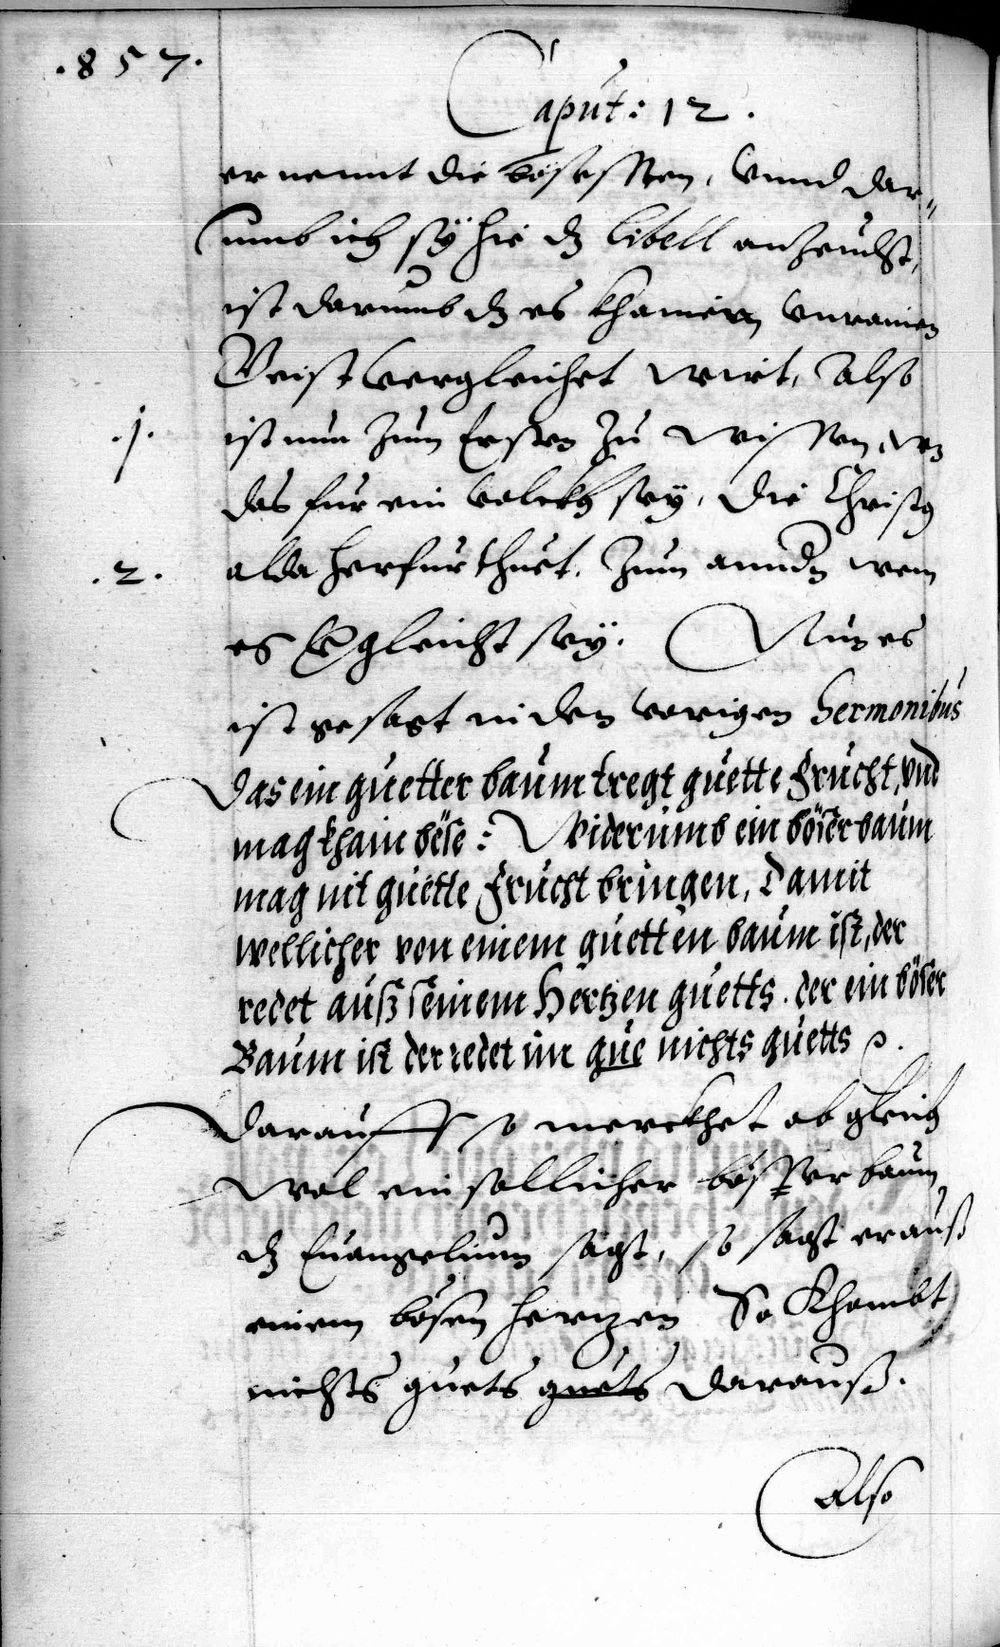 .857.
Caput: 12.
er nennt die bösesten, vnnd dar„
umb ich sÿ hie dz libell anzeucht,
ist darumb dz es khainem vnrainen
Geist vergleichet wirt, Also
.1. ist nun zum Ersten zu wissen, wz
das für ein volckh seÿ, die Christus
.2. alda herfür thuet. Zum anndn wem
es vergleicht seÿ. Nun es
ist gesagt in den vorigen Sermonibus
Das ein guetter baum tregt guette Frucht, vnd
mag khain böse: Widerumb ein böser baum
mag nit guette Frucht bringen, Damit
wellicher von einem guetten baum ist, der
redet auß seinem Hertzen guetts. der ein böser
Baum ist der redet im gue nichts guetts .
Darauff so merckhet ob gleich
wol ein sollicher böster baum
dz Euangelium sagt, so sagt er auß
einem bösen hertzen So Khombt
nichts guets guets darauß.
Also